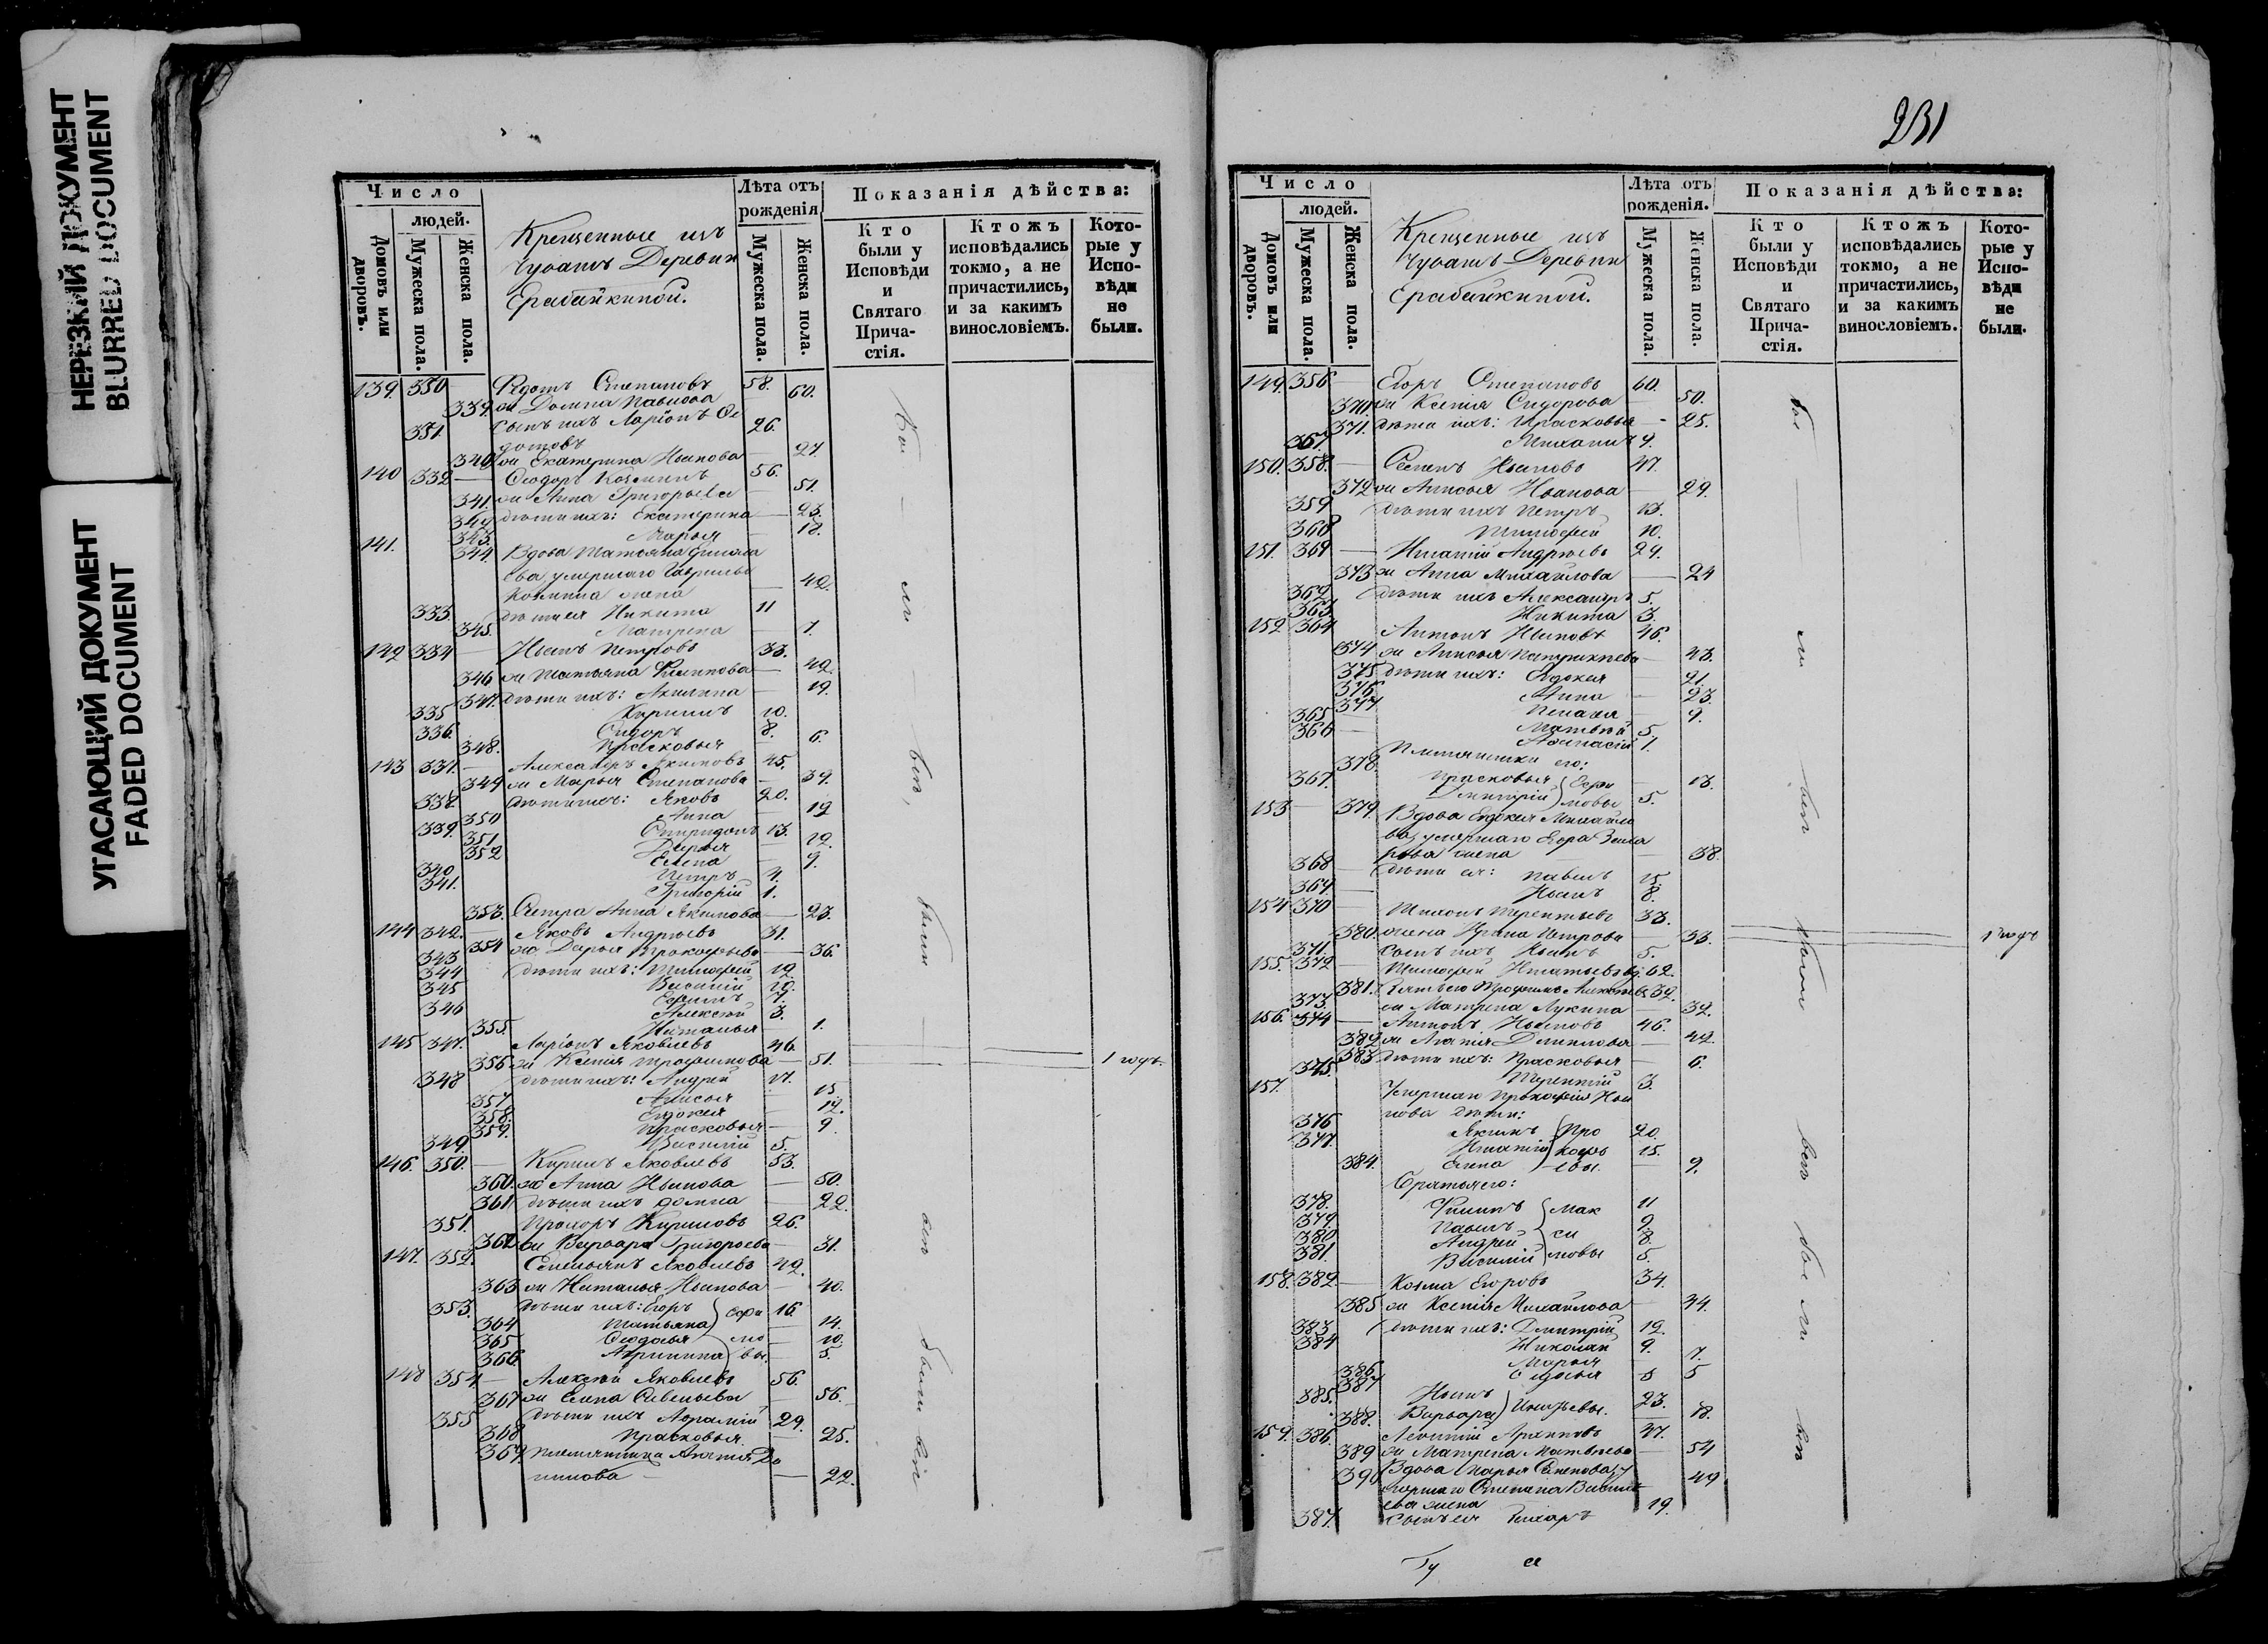 НЕРЕЗКИЙ ДОКУМЕНТ
BLURRED DOCUMENT
УГАСАЮЩИЙ ДОКУМЕНТ
FADED DOCUMENT
Число
людей.
Домовъ или дворовъ.
Мужеска пола.
Женска пола.
Крещенные изъ
Чувашъ Деревни
Ерабайкиной.
Лѣта отъ
рожденія
Мужеска пола.
Женска пола.
Показанія дѣйства:
Кто
были у
Исповѣди
и
Святаго
Прича-
стія.
Ктожъ
исповѣдались
токмо, а не
причастились,
и за какимъ
винословіемъ.
Кото-
рые у
Испо-
вѣди
не
были.
139. 350 Федотъ Степановъ 58.
339. ж Домна Павлова 60.
351. сынъ ихъ Ларіонъ Ѳе
дотовъ 26.
340 ж Екатерина Иванова 27.
140 332 Ѳеодоръ Козминъ 56.
341. ж Анна Григорьева 51.
342 дѣти ихъ: Екатерина 23.
343. Марья 18.
141. 344. Вдова Татьяна
ева, умершаго Гаврилы
Козмина жена 42.
333. дѣти ея Никита 11
345. Матрена 7.
142 334 Иванъ Петровъ 33.
346 ж Татьяна Филипова 42.
347. дѣти ихъ: Акилина 19.
335 Кирилъ 10.
336. Сидоръ 8.
348. Прасковья 6.
143 337. Александръ Якимовъ 45.
349 ж Марья Степанова 39.
338. дѣти ихъ: Яковъ 20.
350 Анна 19
339. Спиридонъ 13.
351 Дарья 12.
352 Елена 9.
340 Петръ 4.
341. Григорій 1.
353. Сестра Анна Якимова 23.
144 342. Яковъ Андреевъ 31.
354 ж Дарья Прокофьева 36.
343 дѣти ихъ: Тимофей 12.
344 Василій 10.
345 Ефимъ 7.
346 Алексѣй 3.
355. Наталья 1.
145 347. Ларіонъ Яковлевъ 46.
356 ж Ксенія Трофимова 51. 1 годъ.
348 дѣти ихъ: Андрей 17.
357 Анисья 15
358. Евдокея 12.
359. Прасковья 9
349. Василій 5.
146. 350. Кирилъ Яковлевъ 53.
360. ж Анна Иванова 50.
361 дѣти ихъ Домна 22.
351. Прохоръ Кириловъ 26.
362 ж Варвара Григорьева 31.
147. 352. Емельянъ Яковлевъ 42.
363 ж Наталья Иванова 40.
353. дѣти ихъ: Егоръ 16
364 Татьяна 14.
365 Ѳедосья 10.
366 Агрипина 5.
148 354 Алексѣй Яковлевъ 56.
367 ж Елена Савельева 56.
355 дѣти ихъ Аврамій 29.
368 Прасковья 25.
369. племянница Агафія Да
нилова 22.
231
Число
людей.
Домовъ или дворовъ.
Мужеска пола.
Женска пола.
Крещенные изъ
Чувашъ Деревни
Ерабайкиной.
Лѣта отъ
рожденія.
Мужеска пола.
Женска пола.
Показанія дѣйства:
Кто
были у
Исповѣди
и
Святаго
Прича-
стія.
Ктожъ
исповѣдались
токмо, а не
причастились,
и за какимъ
винословіемъ.
Кото-
рые у
Испо-
вѣди
не
были.
149. 356 Егоръ Степановъ 60.
370. ж Ксенія Сидорова 50.
371. дѣти ихъ: Прасковья 25.
357. Михаилъ 4.
150. 358. Семенъ Ивановъ 47.
372 ж Анисья Иванова 29.
359 дѣти ихъ Петръ 13.
360 Тимофей 10.
151. 361 Игнатій Андреевъ 24.
373 ж Анна Михайлова 24
362. дѣти ихъ Александръ 5.
363. Никита 3.
152 364 Антонъ Ивановъ 46.
374 ж Анисья 43.
375 дѣти ихъ: Евдокея 21.
376 Анна 23.
377 Пелагея 9.
365 Матвѣй 5.
366 Афанасій 1.
Племянники его:
378. Прасковья 13.
367. Дмитрій 5.
153 379. Вдова Евдокея Михайло
ва, умершаго Егора
жена 38.
368 дѣти ея: Павелъ 15.
369. Иванъ 8.
154 370 Тихонъ Терентьевъ 33.
380. жена Ирина Петрова 33. 1 годъ
371. сынъ ихъ Иванъ 5.
155. 372 Тимофей Игнатьевъ вд. 62.
373. 32.
381. ж Матрена Лукина 32.
156. 374 Антонъ Ивановъ 46.
382 ж Агафія Данилова 42.
383 дѣти ихъ: Прасковья 6.
375. Терентій 3.
157. Умершаго Прокофья Ива
нова дѣти:
376 Якимъ 20.
377. Игнатій 15.
384. Елена 9.
Братья его:
378. Филипъ 11
379. Павелъ 9.
380 Андрей 8.
381. Василій 5.
158. 382. Козма Егоровъ 34.
385 ж Ксенія Михайлова 34.
383 дѣти ихъ: Дмитрій 12.
384 Николай 9.
386 Марья 7.
387 5
385. Иванъ 23.
388. Варвара 18.
159. 386. Леонтій Архиповъ 47.
389 ж Матрена Матвѣева 54
390 Вдова Марья Семенова, у
мершаго Степана Василь
ева жена 49
387. сынъ ея 19.